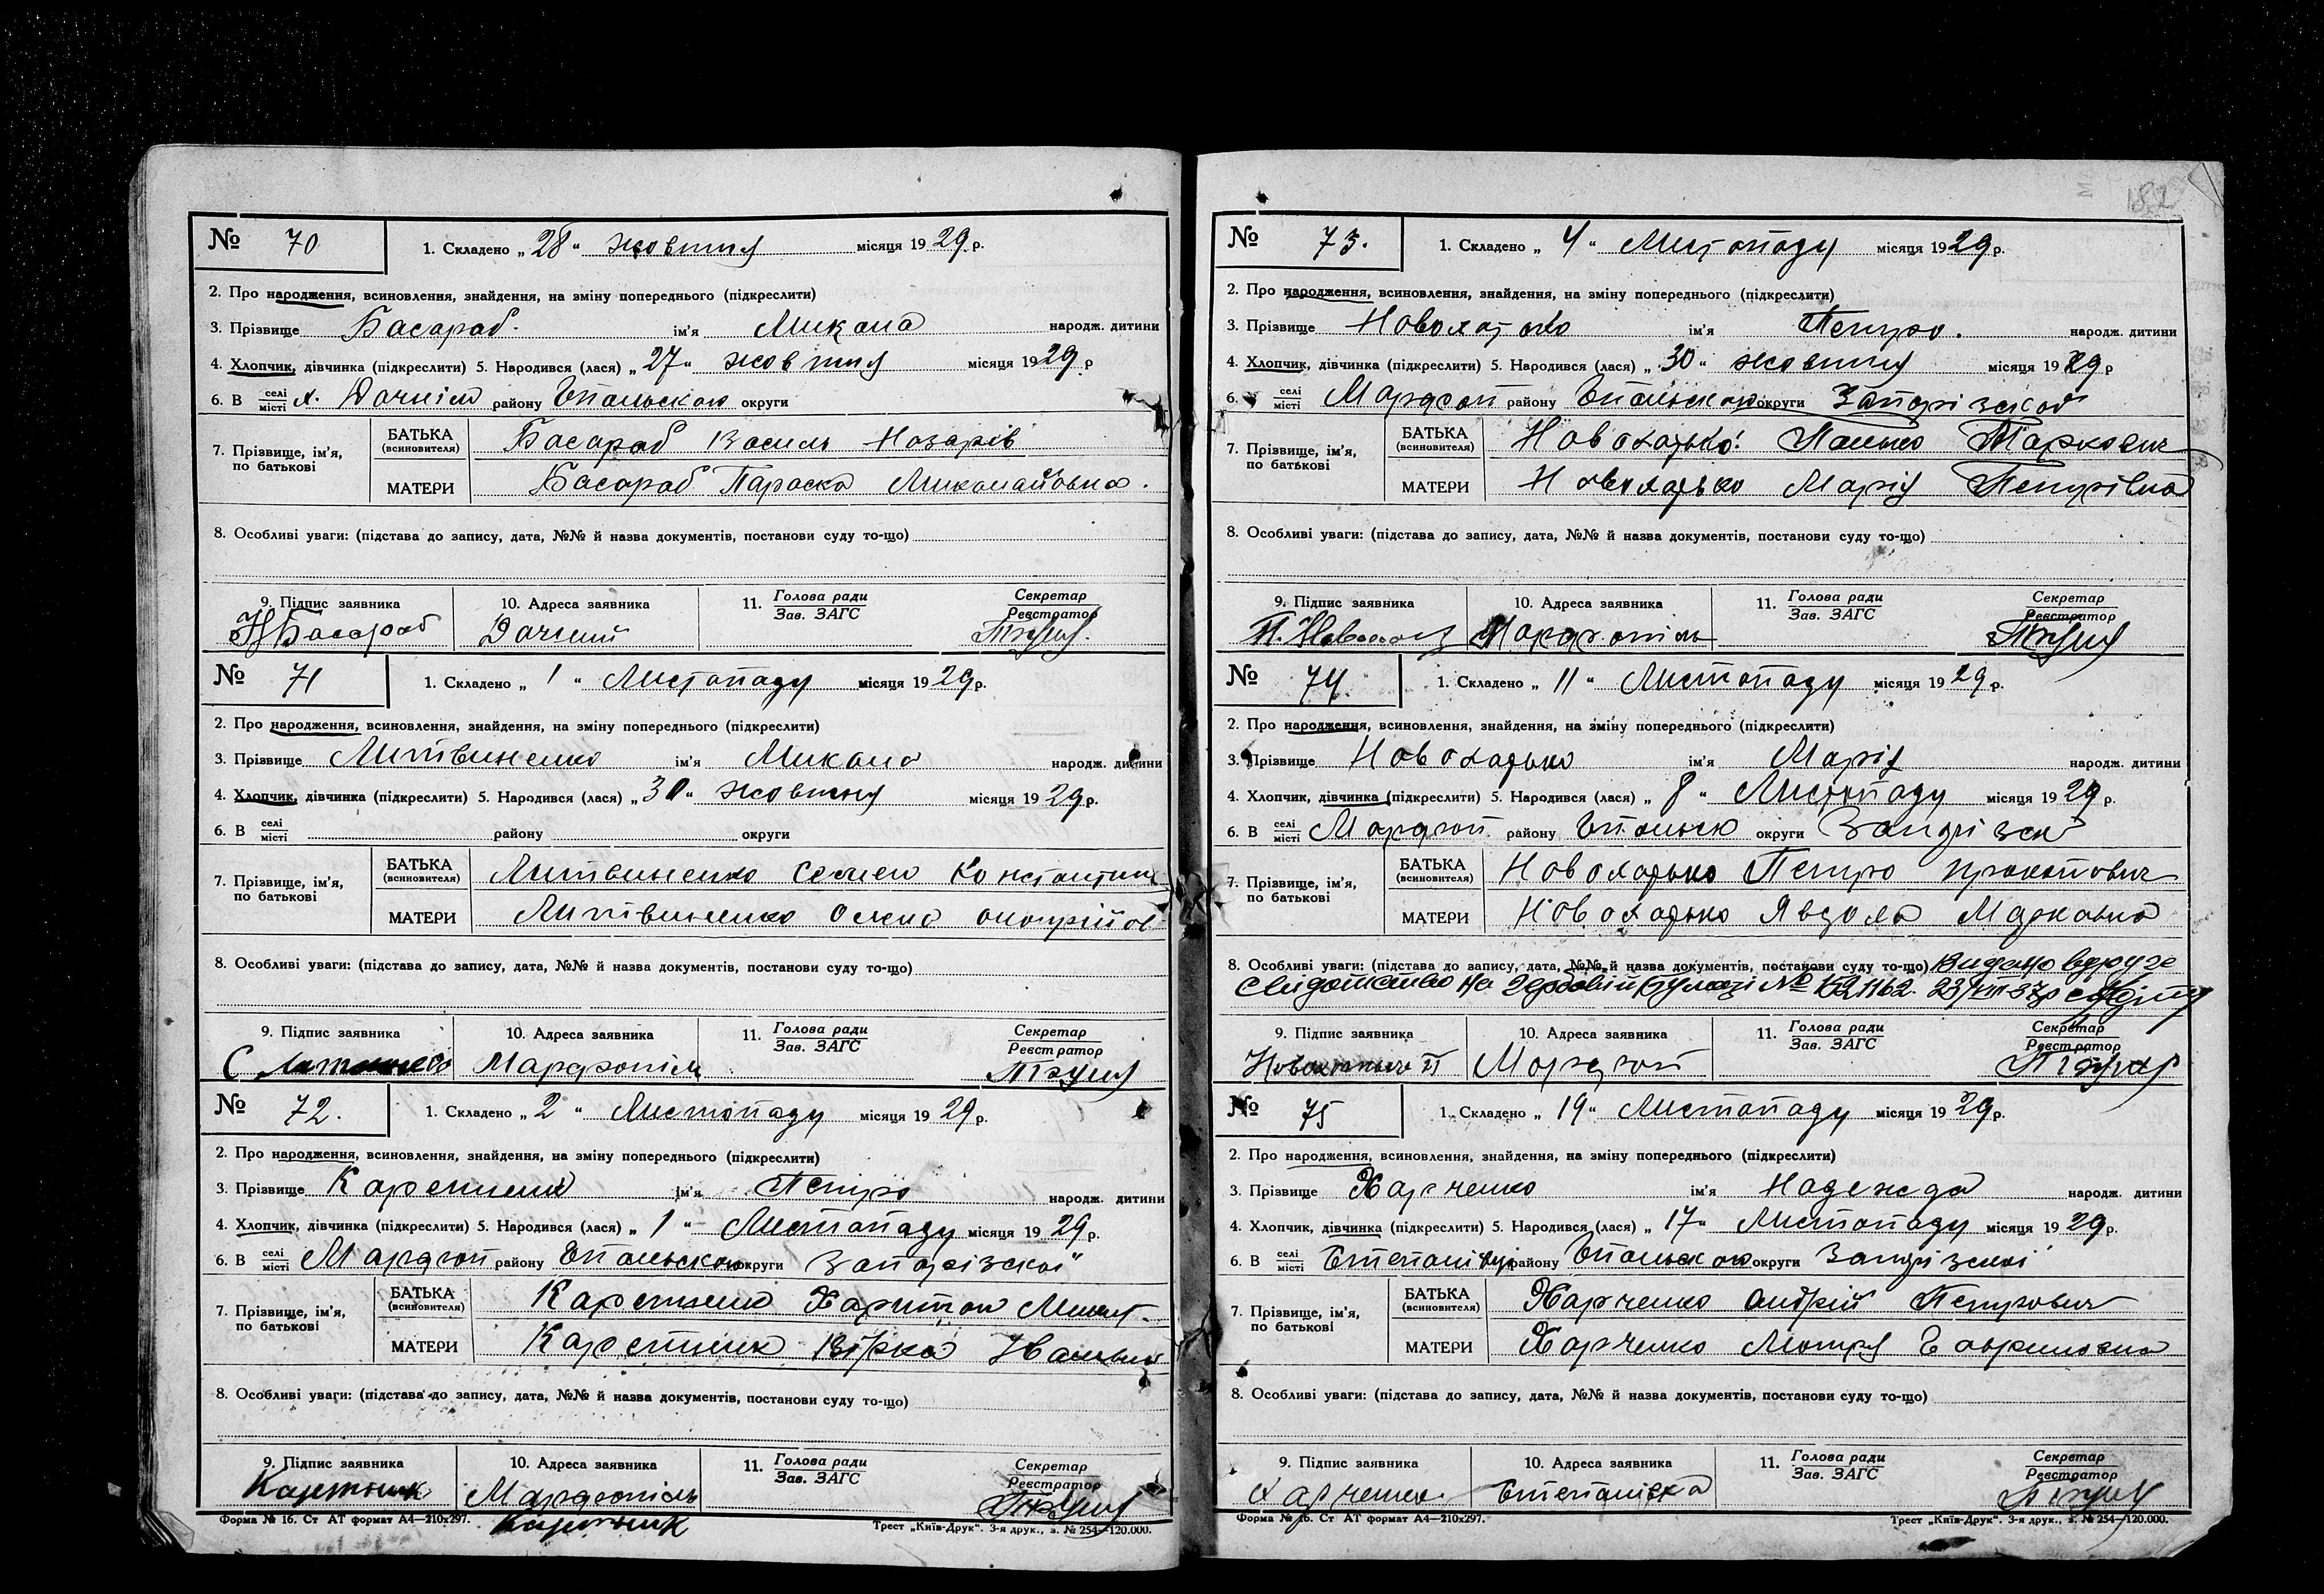 № 70
1. Складено „28“ жовтня місяця 1929 р.
2. Про народження, всиновлення, знайдення, на зміну попереднього (підкреслити)
3. Прізвище Басараб ім'я Микола народж. дитини
4. Хлопчик, дівчинка (підкреслити) 5. Народився (лася) „27“ жовтня місяця 1929 р
6. В селі місті х. Дачнім району округи
7. Прізвище, ім'я, по батькові
БАТЬКА (всиновителя) Басараб Василь Назарів
МАТЕРИ Басараб Параска Миколаївна.
8. Особливі уваги: (підстава до запису, дата, №№ й назва документів, постанови суду то-що)
9. Підпис заявника 10. Адреса заявника 11. Голова ради Зав. ЗАГС Секретар Реєстратор
Басараб Дачний
№ 71
1. Складено „1“ Листопаду місяця 1929 р.
2. Про народження, всиновлення, знайдення, на зміну попереднього (підкреслити)
3. Прізвище Литвиненко ім'я Микола народж. дитини
4. Хлопчик, дівчинка (підкреслити) 5. Народився (лася) „30“ жовтня місяця 1929 р.
6. В селі місті району округи
7. Прізвище, ім'я, по батькові
БАТЬКА (всиновителя) Литвиненко Семен Константин
МАТЕРИ Литвиненко Олена
8. Особливі уваги: (підстава до запису, дата, №№ й назва документів, постанови суду то-що)
9. Підпис заявника 10. Адреса заявника 11. Голова ради Зав. ЗАГС Секретар Реєстратор
С Марфопіль
№ 72.
1. Складено „2“ Листопаду місяця 1929 р.
2. Про народження, всиновлення, знайдення, на зміну попереднього (підкреслити)
3. Прізвище Каретник ім'я Петро народж. дитини
4. Хлопчик, дівчинка (підкреслити) 5. Народився (лася) „1“ Листопаду місяця 1929 р.
6. В селі місті Марфоп району округи Запорізської
7. Прізвище, ім'я, по батькові
БАТЬКА (всиновителя) Каретник Харитон
МАТЕРИ Каретник Вірка
8. Особливі уваги: (підстава до запису, дата, №№ й назва документів, постанови суду то-що)
9. Підпис заявника 10. Адреса заявника 11. Голова ради Зав. ЗАГС Секретар Реєстратор
Каретник Марфопіль
Каретник
Форма № 16. Ст АТ формат А4—210x297. Трест „Київ-Друк“. 3-я друк., з. № 254—120.000.
182
№ 73.
1. Складено „4“ Листопаду місяця 1929 р.
2. Про народження, всиновлення, знайдення, на зміну попереднього (підкреслити)
3. Прізвище Новохатько ім'я Петро. народж. дитини
4. Хлопчик, дівчинка (підкреслити) 5. Народився (лася) „30“ жовтня місяця 1929 р
6. В селі місті Марфоп району округи Запорізської
7. Прізвище, ім'я, по батькові
БАТЬКА (всиновителя) Новохатько Панько Маркович
МАТЕРИ Новохатько Марія Петрівна
8. Особливі уваги: (підстава до запису, дата, №№ й назва документів, постанови суду то-що)
9. Підпис заявника 10. Адреса заявника 11. Голова ради Зав. ЗАГС Секретар Реєстратор
П. Марфопіль
№ 74
1. Складено „11“ Листопаду місяця 1929 р.
2. Про народження, всиновлення, знайдення, на зміну попереднього (підкреслити)
3. Прізвище Новохатько ім'я Марія народж. дитини
4. Хлопчик, дівчинка (підкреслити) 5. Народився (лася) „8“ Листопаду місяця 1929 р.
6. В селі місті Марфоп району округи
7. Прізвище, ім'я, по батькові
БАТЬКА (всиновителя) Новохатько Петро Прокопович
МАТЕРИ Новохатько Явдоха Марковна
8. Особливі уваги: (підстава до запису, дата, №№ й назва документів, постанови суду то-що) Видано вдруге
на гербовій бумазі №
9. Підпис заявника 10. Адреса заявника 11. Голова ради Зав. ЗАГС Секретар Реєстратор
Марфоп
№ 75
1. Складено „19“ Листопаду місяця 1929 р.
2. Про народження, всиновлення, знайдення, на зміну попереднього (підкреслити)
3. Прізвище Харченко ім'я Надежда народж. дитини
4. Хлопчик, дівчинка (підкреслити) 5. Народився (лася) „17“ Листопаду місяця 1929 р.
6. В селі місті району округи
7. Прізвище, ім'я, по батькові
БАТЬКА (всиновителя) Харченко Андрій Петрович
МАТЕРИ Харченко Мотря Гавриловна
8. Особливі уваги: (підстава до запису, дата, №№ й назва документів, постанови суду то-що)
9. Підпис заявника 10. Адреса заявника 11. Голова ради Зав. ЗАГС Секретар Реєстратор
Харченко Степанівка
Форма № 16. Ст АТ формат А4—210x297. Трест „Київ-Друк“. 3-я друк., з. № 254—120.000.